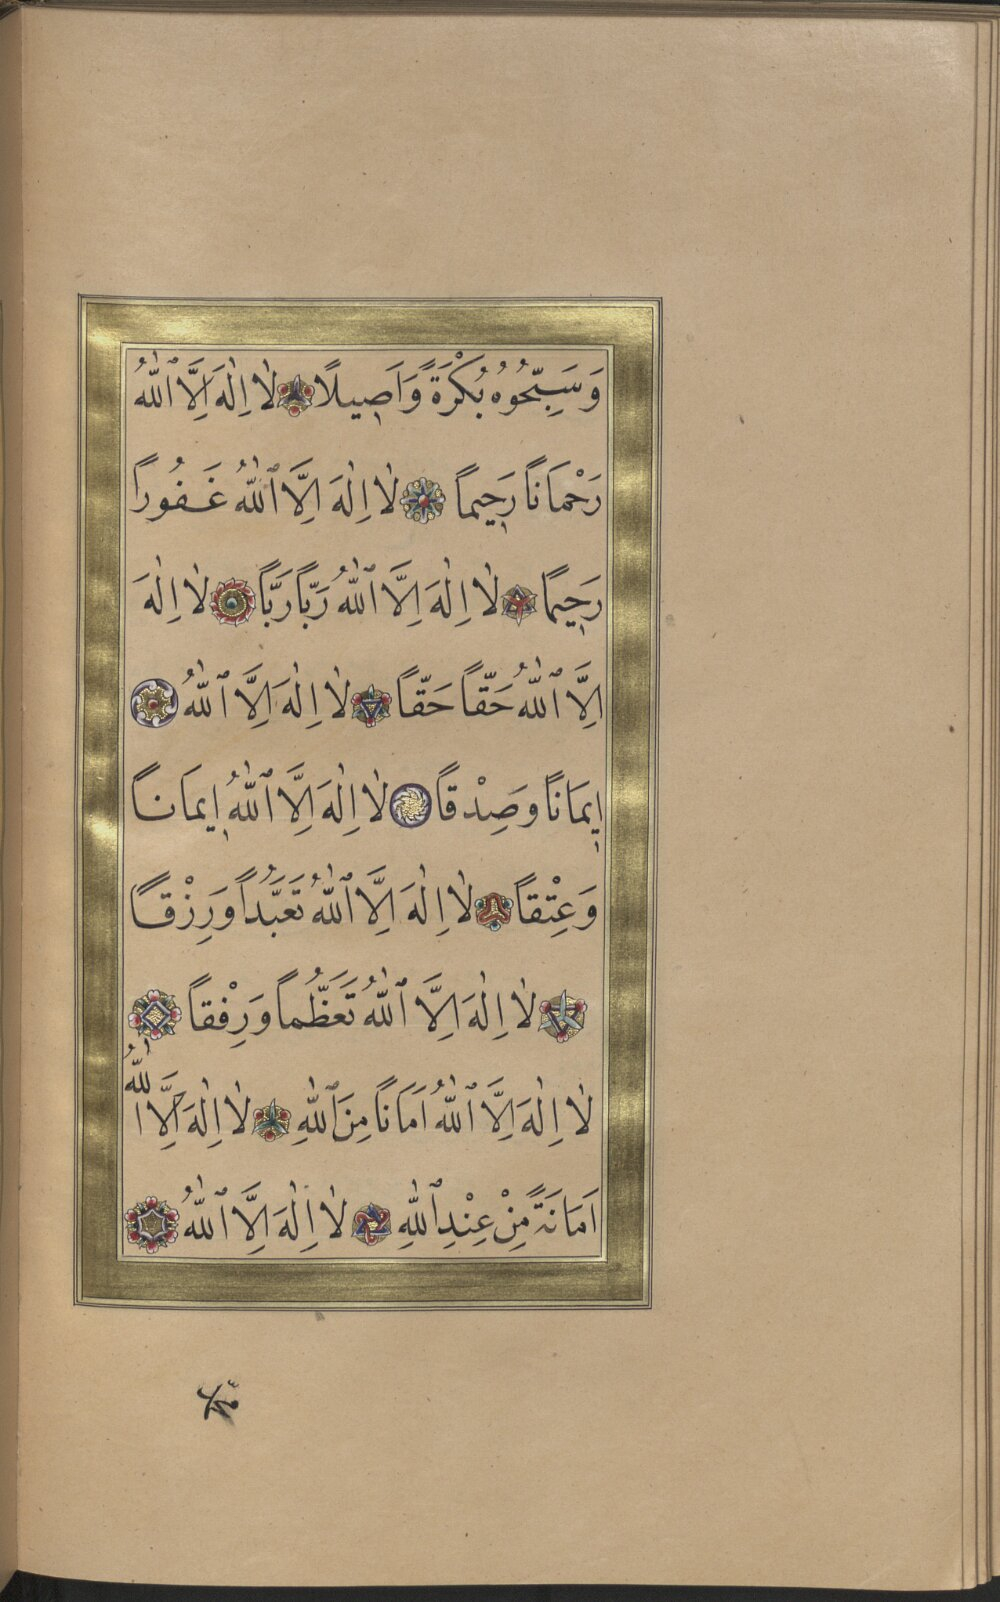 وَسَبِّحُوهُ بُكْرَةً وَاَصِيلًا لَا اِلٰهَ اِلَّا ٱللّٰهُ
رَحْمَانًا رَحِيمًا لَا اِلٰهَ اِلَّا ٱللّٰهُ غَفُورًا
رَحِيمًا لَا اِلٰهَ اِلَّا ٱللّٰهُ رَبًّا رَبًّا لَا اِلٰهَ
اِلَّا ٱللّٰهُ حَقًّا حَقًّا لَا اِلٰهَ اِلَّا ٱللّٰهُ
اِيمَانًا وَصِدْقًا لَا اِلٰهَ اِلَّا ٱللّٰهُ اِيمَانًا
وَعِتْقًا لَا اِلٰهَ اِلَّا ٱللّٰهُ تَعَبُّدًا وَرِزْقًا
لَا اِلٰهَ اِلَّا ٱللّٰهُ تَعَظُّمًا وَرِفْقًا
لَا اِلٰهَ اِلَّا ٱللّٰهُ اَمَانًا مِنَ ٱللّٰهِ لَا اِلٰهَ اِلَّا اللّٰهُ
اَمَانَةً مِنْ عِنْدِ ٱللّٰهِ لَا اِلٰهَ اِلَّا ٱللّٰهُ